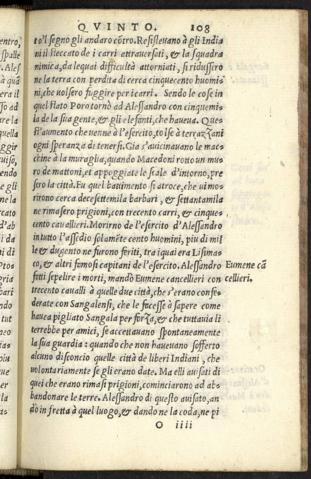 QVINTO. 108
to'l segno gli andaro cōtro. Resistevano à gli India
ni il steccato de i carri attraversati, & la squadra
nimica, da lequai difficultà atterriti, si ridussiro
ne la terra con perdita di cerca cinquecento huomi
ni, che volsero fuggire per i carri. Sendo le cose in
quel stato Poro tornò ad Alessandro con cinquemi-
la de la sua gente, & gli elefanti, che haueua. Ques
st'aumento che uenne à l'esercito, tolse à terrazzani
ogni speranza di tenersi. Gia s'auicinauano le mac
chine à la muraglia, quando Macedoni rotto un mu
ro de mattoni, et appoggiate le scale d'intorno, pre
sero la città. Fu quel battimento si atroce, che ui mo
rirono cerca decesettemila barbari, & settantamila
ne rimasero prigioni, con trecento carri, & cinque
cento cauallieri. Morirno de l'esercito d'Alessandro
in tutto l'assedio solamēte cento huomini, piu di mil
le & dugento ne furono feriti, tra i quai era Lisima
co, & altri famosi capitani de l'esercito. Alessandro
fatti sepelire i morti, mandò Eumene cancellieri con
trecento caualli à quelle due città, che s'erano confe
derate con Sangalensi, che le facesse à sapere come
haueа pigliato Sangala per forza, & che tuttauia li
terrebbe per amici, se accettauano spontaneamente
la sua guardia: quando che non haueuano sofferto
alcuno disconcio quelle città de liberi Indiani, che
volontariamente se gli erano date. Ma elli auisati di
quei che erano rimasi prigioni, cominciorono ad ab=
bandonare le terre. Alessandro di questo auisato, an
dò in fretta à quel luogo, & dando ne la coda, ne pi
O iiii
Eumene cā
cellieri.